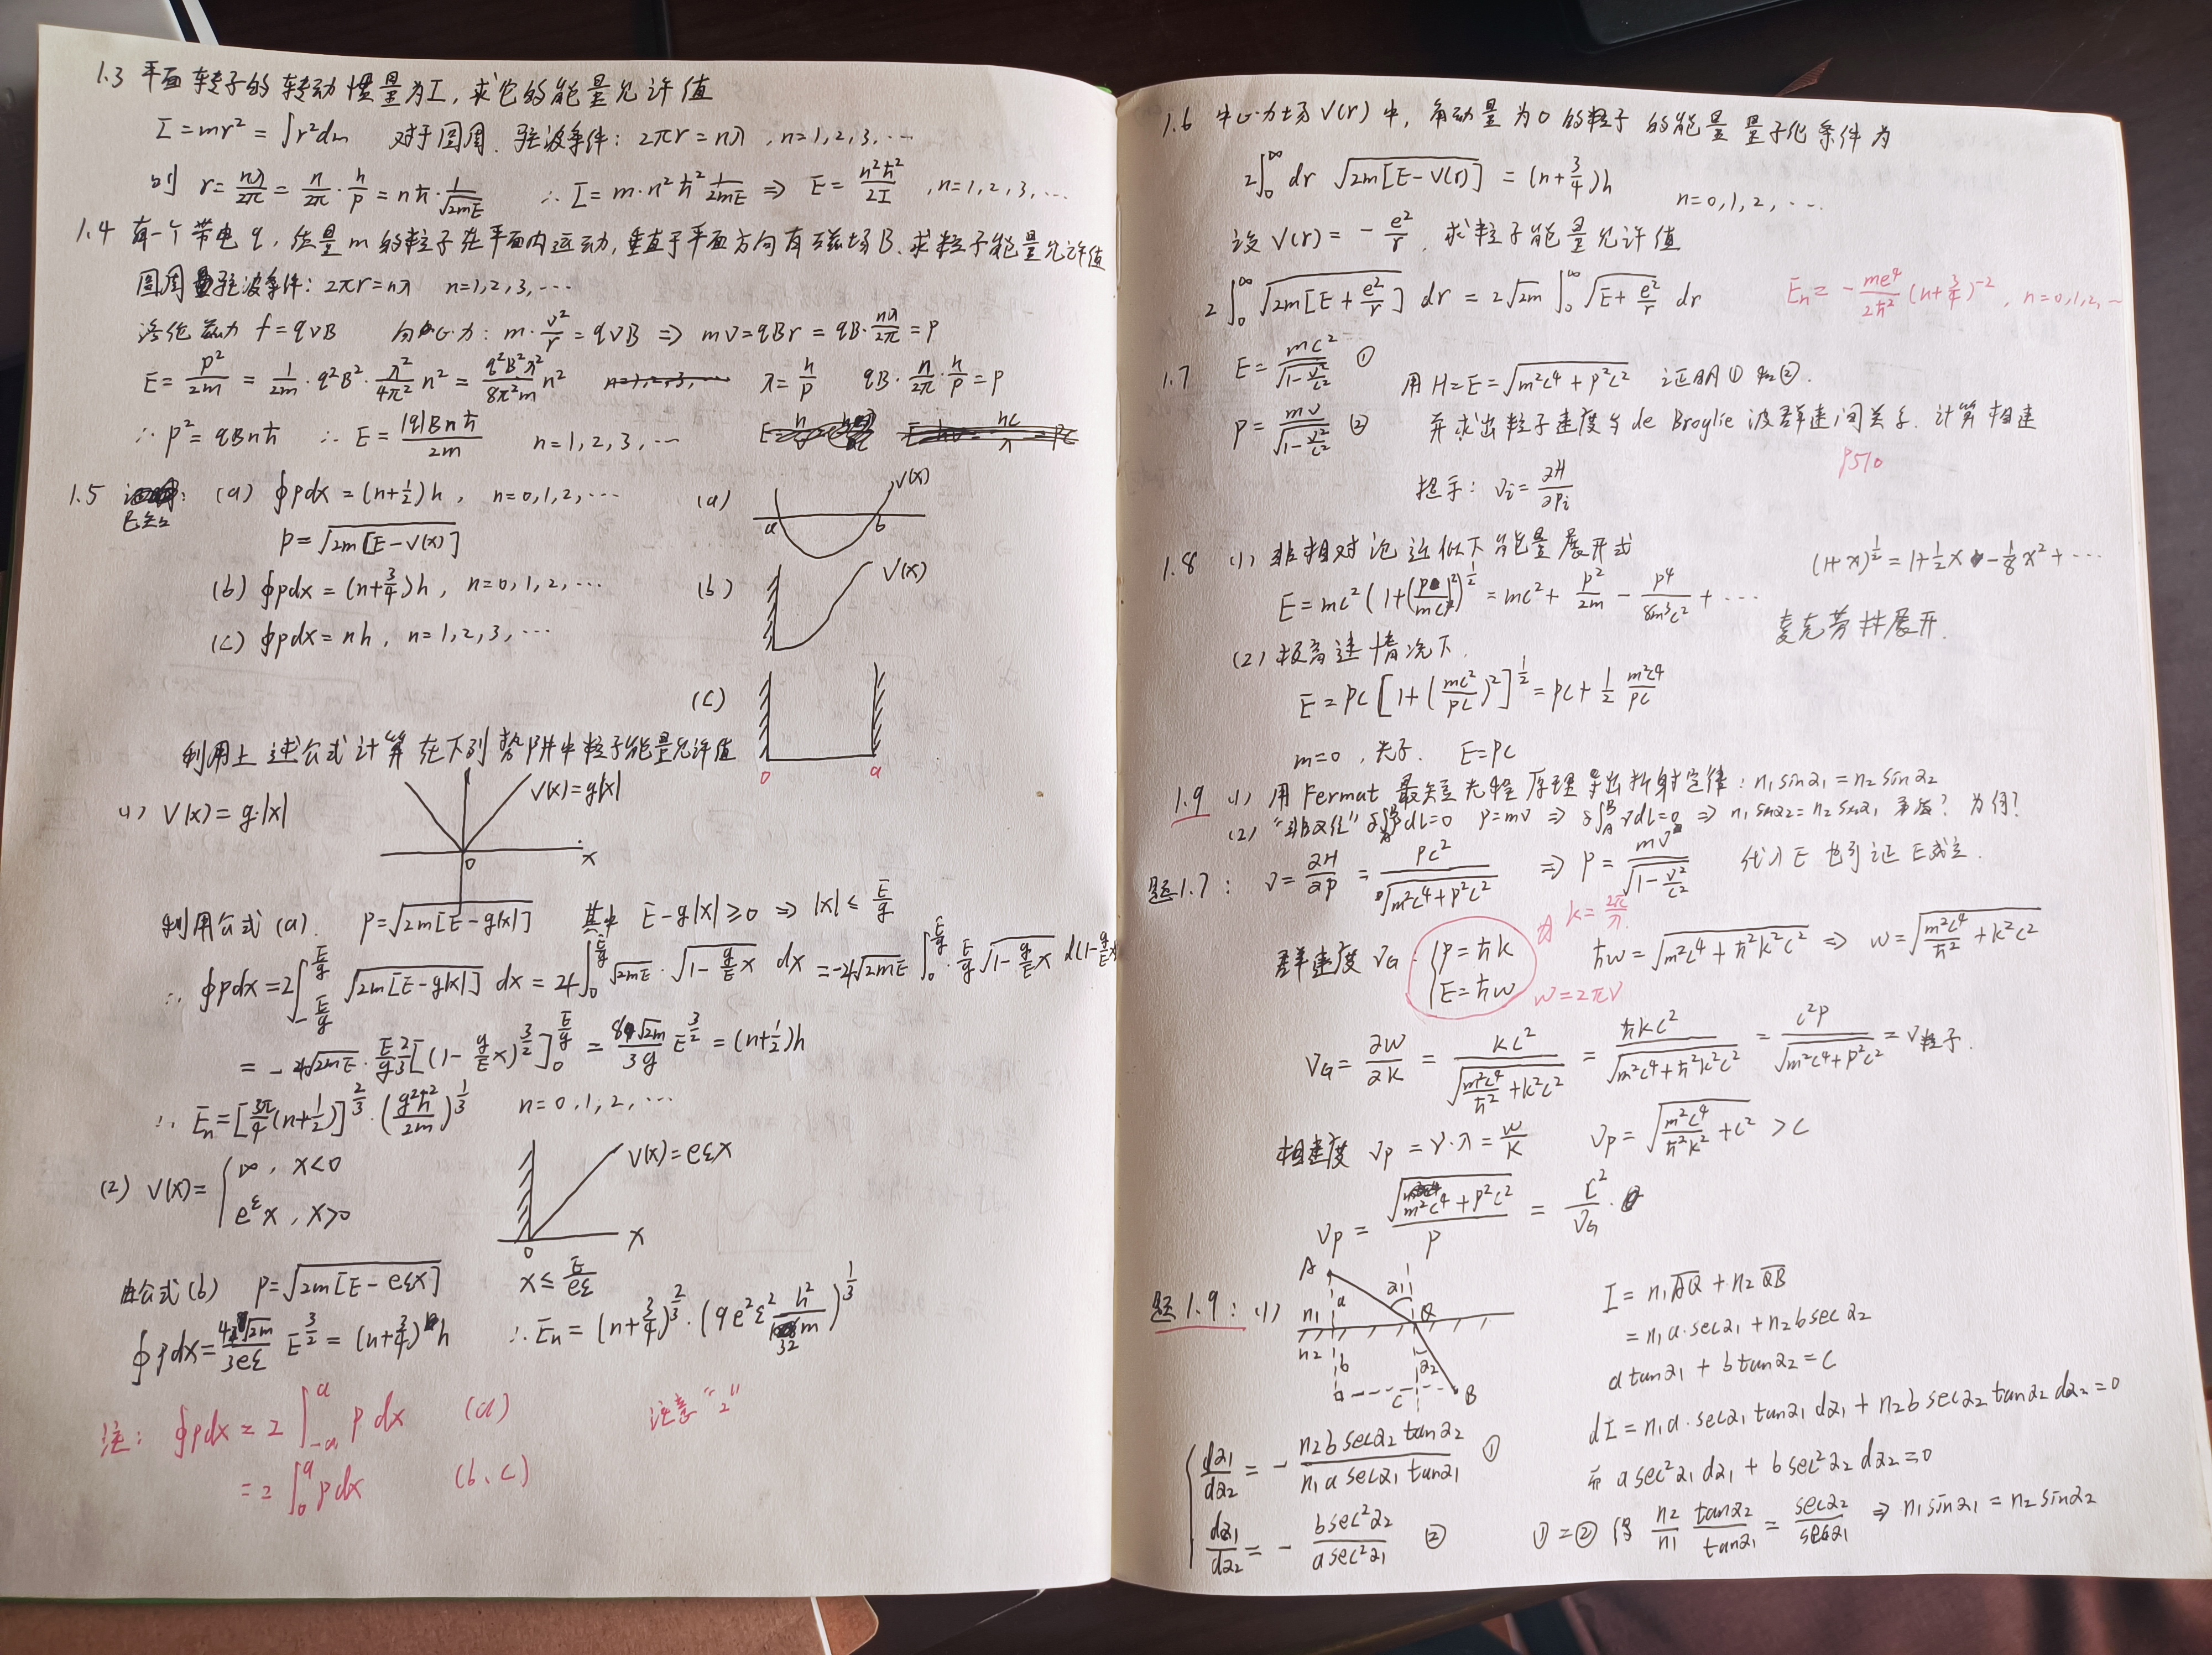 1.3 平面转子的转动惯量为I,求它的能量允许值
I=mr²=∫r²dm 对于圆周,驻波条件:2πr=nλ,n=1,2,3,…
则 r=nλ/2π=n/2π·h/p=nħ·1/√(2mE) ∴I=m·n²ħ²1/2mE ⇒ E=n²ħ²/2I,n=1,2,3,…
1.4 有一个带电q,质量m的粒子在平面内运动,垂直于平面方向有磁场B.求粒子能量允许值
圆周驻波条件:2πr=nλ n=1,2,3,…
洛伦兹力 f=qvB 向心力:m·v²/r=qvB ⇒ mv=qBr=qB·nλ/2π=p
E=p²/2m=1/2m·q²B²·λ²/4π²n²=q²B²λ²/8π²m n² λ=h/p qB·n/2π·h/p=p
∴p²=qBnħ ∴E=|q|Bnħ/2m n=1,2,3,…
1.5 已知: (a) ∮pdx=(n+1/2)h, n=0,1,2,… (a) V(x) a b
p=√(2m[E-V(x)])
(b) ∮pdx=(n+3/4)h, n=0,1,2,… (b) V(x)
(c) ∮pdx=nh, n=1,2,3,…
(c) 0 a
利用上述公式计算在下列势阱中粒子能量允许值
(1) V(x)=g|x| V(x)=g|x| 0 x
利用公式(a). p=√(2m[E-g|x|]) 其中 E-g|x|≥0 ⇒ |x|≤E/g
∴∮pdx=2∫_{-E/g}^{E/g}√(2m[E-g|x|])dx=4∫₀^{E/g}√(2mE)·√(1-g/E x) dx=-4√(2mE)∫₀^{E/g}·E/g√(1-g/E x) d(1-g/E x)
=-4√(2mE)·E/g 2/3[(1-g/E x)^{3/2}]₀^{E/g}=8√(2m)/3g E^{3/2}=(n+1/2)h
∴E_n=[3π/4(n+1/2)]^{2/3}·(g²ħ²/2m)^{1/3} n=0,1,2,…
(2) V(x)={∞,x<0 V(x)=eεx
eεx,x>0 0 x
由公式(b) p=√(2m[E-eεx]) x≤E/eε
∮pdx=4√(2m)/3eε E^{3/2}=(n+3/4)h ∴E_n=(n+3/4)^{2/3}·(9e²ε²h²/32m)^{1/3}
注: ∮pdx=2∫_{-a}^{a}p dx (a) 注意“2”
=2∫₀^{a}pdx (b、c)
1.6 中心力场V(r)中,角动量为0的粒子的能量量子化条件为
2∫₀^∞dr √(2m[E-V(r)])=(n+3/4)h n=0,1,2,…
设V(r)=-e²/r,求粒子能量允许值
2∫₀^∞√(2m[E+e²/r]) dr=2√(2m)∫₀^∞√(E+e²/r) dr E_n=-me⁴/2ħ²(n+3/4)^{-2}, n=0,1,2,…
1.7 E=mc²/√(1-v²/c²) ① 用H=E=√(m²c⁴+p²c²) 证明①和②.
p=mv/√(1-v²/c²) ② 并求出粒子速度与de Broglie波群速间关系.计算相速
P510
提示:v_i=∂H/∂p_i
1.8 (1) 非相对论近似下能量展开式 (1+x)^{1/2}=1+1/2x-1/8x²+…
E=mc²(1+(p/mc)²)^{1/2}=mc²+p²/2m-p⁴/8m³c²+… 麦克劳林展开.
(2) 极高速情况下.
E=pc[1+(mc²/pc)²]^{1/2}=pc+1/2 m²c⁴/pc
m=0,光子. E=pc
1.9 (1) 用Fermat最短光程原理导出折射定律:n₁sinα₁=n₂sinα₂
(2) δ∫_A^B pdl=0 p=mv ⇒ δ∫_A^B vdl=0 ⇒ n₁sinα₂=n₂sinα₁ 矛盾?为何?
题1.7: v=∂H/∂p=pc²/√(m²c⁴+p²c²) ⇒ p=mv/√(1-v²/c²) 代入E也可证E成立.
k=2π/λ
群速度v_G:{p=ħk ħω=√(m²c⁴+ħ²k²c²) ⇒ ω=√(m²c⁴/ħ²+k²c²)
E=ħω ω=2πν
v_G=∂ω/∂k=kc²/√(m²c⁴/ħ²+k²c²)=ħkc²/√(m²c⁴+ħ²k²c²)=c²p/√(m²c⁴+p²c²)=v粒子.
相速度 v_p=ν·λ=ω/k v_p=√(m²c⁴/ħ²k²+c²)>c
v_p=√(m²c⁴+p²c²)/p=c²/v_G.
题1.9:(1) A a α₁ n₁ Q n₂ b α₂ C B I=n₁AQ+n₂QB
=n₁a·secα₁+n₂bsecα₂
atanα₁+btanα₂=C
dI=n₁a·secα₁tanα₁dα₁+n₂bsecα₂tanα₂dα₂=0
{dα₁/dα₂=-n₂bsecα₂tanα₂/n₁asecα₁tanα₁ ① 而asec²α₁dα₁+bsec²α₂dα₂=0
dα₁/dα₂=-bsec²α₂/asec²α₁ ② ①=②得 n₂/n₁ tanα₂/tanα₁=secα₂/secα₁ ⇒ n₁sinα₁=n₂sinα₂